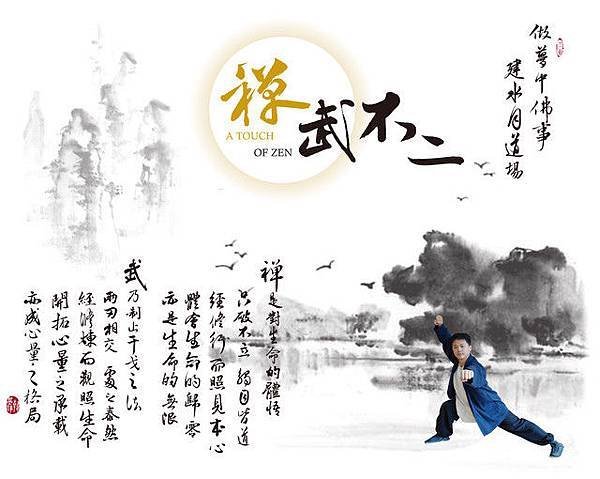 禪武不二
A TOUCH
OF ZEN
做夢中佛事
建水月道場
禪是對生命的體悟
只破不立 觸目皆道
經修行而照見本心
體會生命的歸零
亦是生命的無限
武乃制止干戈之法
兩刃相交 處之泰然
經修煉而觀照生命
開拓心量之承載
亦成心量之格局